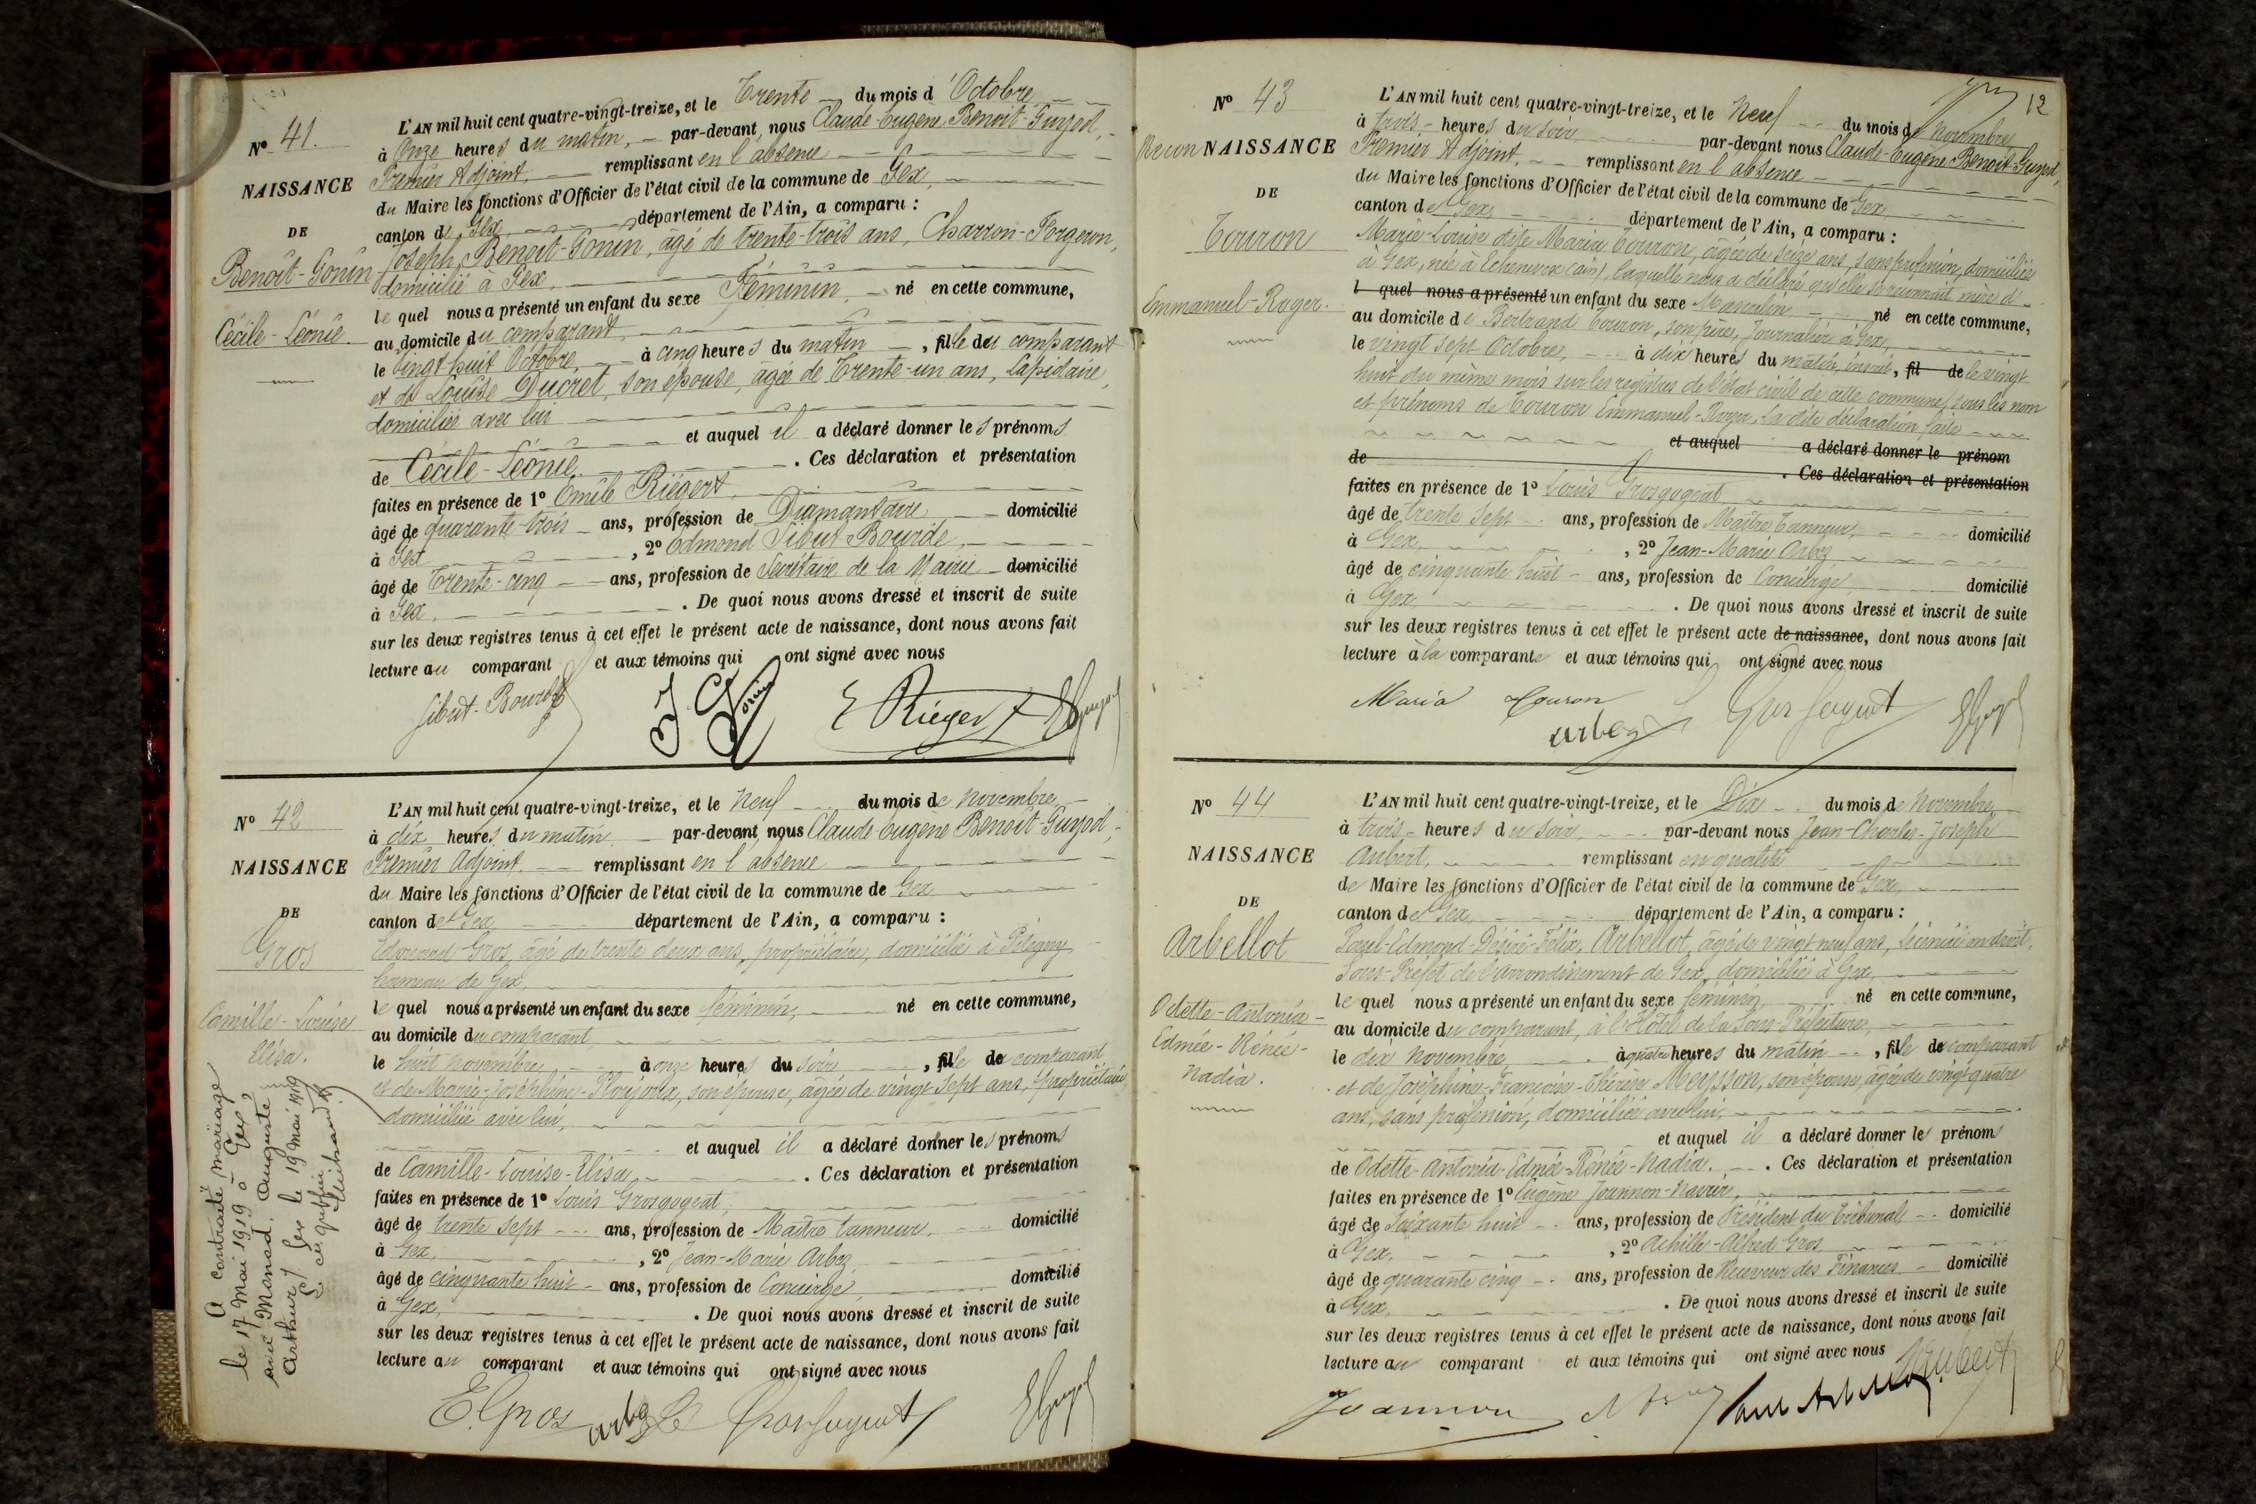 N° 41.
NAISSANCE
DE
Benoît-Gonin
Cécile-Léonie
L'AN mil huit cent quatre-vingt-treize, et le Trente du mois d'Octobre
à Onze heures du matin, par-devant nous Claude-Eugène Benoit-Guyod,
Premier Adjoint, remplissant en l'absence
du Maire les fonctions d'Officier de l'état civil de la commune de Gex,
canton de Gex, département de l'Ain, a comparu :
Joseph Benoit-Gonin, âgé de trente-trois ans, Charron-Forgeron,
domicilié à Gex,
le quel nous a présenté un enfant du sexe Féminin, né en cette commune,
au domicile du comparant,
le vingt huit Octobre, à cinq heures du matin, fille du comparant
et de Louise Ducret, son épouse, agée de Trente-un ans, Lapidaire,
domiciliée avec lui
et auquel il a déclaré donner les prénoms
de Cécile-Léonie. Ces déclaration et présentation
faites en présence de 1° Emile Riegert,
âgé de quarante-trois ans, profession de Diamantaire domicilié
à Gex, 2° Edmond Sibut-Bourde,
âgé de Trente-cinq ans, profession de Secrétaire de la Mairie domicilié
à Gex. De quoi nous avons dressé et inscrit de suite
sur les deux registres tenus à cet effet le présent acte de naissance, dont nous avons fait
lecture au comparant et aux témoins qui ont signé avec nous
Sibut-Bourde E Riegert EGuyod
N° 42
NAISSANCE
DE
Gros
Camille-Louise
Elisa.
A contracté mariage
le 17 mai 1919 à Gex,
avec Monod Auguste
Arthur / Gex le 19 mai 1919
Le greffier
L'AN mil huit cent quatre-vingt-treize, et le Neuf du mois de Novembre
à dix heures du matin par-devant nous Claude-Eugène Benoit-Guyod,
Premier Adjoint remplissant en l'absence
du Maire les fonctions d'Officier de l'état civil de la commune de Gex
canton de Gex, département de l'Ain, a comparu :
Edouard Gros, âgé de trente deux ans, propriétaire, domicilié à Pitegny
hameau de Gex,
le quel nous a présenté un enfant du sexe féminin, né en cette commune,
au domicile du comparant
le huit novembre, à onze heures du soir, fille de comparant
et de Marie-Joséphine, son épouse, âgée de vingt sept ans, propriétaire
domiciliée avec lui,
et auquel il a déclaré donner les prénoms
de Camille-Louise-Elisa. Ces déclaration et présentation
faites en présence de 1° Louis Grosgogeat,
âgé de trente sept ans, profession de Maître tanneur, domicilié
à Gex, 2° Jean-Marie Arbez
âgé de cinquante huit ans, profession de Concierge, domicilié
à Gex. De quoi nous avons dressé et inscrit de suite
sur les deux registres tenus à cet effet le présent acte de naissance, dont nous avons fait
lecture au comparant et aux témoins qui ont signé avec nous
E. Gros arbez Grosgogeat EGuyod
12
N° 43
Reconn NAISSANCE
DE
Touron
Emmanuel-Roger.
L'AN mil huit cent quatre-vingt-treize, et le Neuf du mois de Novembre
à trois heures du soir par-devant nous Claude-Eugène Benoit-Guyod,
Premier Adjoint, remplissant en l'absence
du Maire les fonctions d'Officier de l'état civil de la commune de Gex
canton de Gex, département de l'Ain, a comparu :
Marie-Louise dite Maria Touron, âgée de seize ans, sans profession, domiciliée
à Gex, née à Echenevex (Ain), laquelle nous a déclaré qu'elle se reconnait mère d'
l quel nous a présenté un enfant du sexe Masculin né en cette commune,
au domicile de Bertrand Touron, son père, Journalier à Gex,
le vingt sept Octobre, à dix heures du matin, inscrit, fil de le vingt
huit du même mois sur les registres de l'état civil de cette commune, sous les nom
et prénoms de Touron Emmanuel-Roger. La dite déclaration faite
et auquel a déclaré donner le prénom
de . Ces déclaration et présentation
faites en présence de 1° Louis Grosgogeat
âgé de trente sept ans, profession de Maître tanneur, domicilié
à Gex, 2° Jean-Marie Arbez
âgé de cinquante huit ans, profession de Concierge domicilié
à Gex. De quoi nous avons dressé et inscrit de suite
sur les deux registres tenus à cet effet le présent acte de naissance, dont nous avons fait
lecture à la comparante et aux témoins qui ont signé avec nous
Maria Touron arbez Grosgogeat EGuyod
N° 44
NAISSANCE
DE
Arbellot
Odette-Antonia-
Edmée-Rénée-
Nadia.
L'AN mil huit cent quatre-vingt-treize, et le Dix du mois de Novembre
à trois heures du soir par-devant nous Jean-Charles-Joseph
Aubert, remplissant en qualité
de Maire les fonctions d'Officier de l'état civil de la commune de Gex
canton de Gex, département de l'Ain, a comparu :
Paul-Edmond-Désiré-Félix, Arbellot, âgé de vingt neuf ans, licencié en droit,
Sous-Préfet de l'arrondissement de Gex, domicilié à Gex,
le quel nous a présenté un enfant du sexe féminin né en cette commune,
au domicile du comparant, à l'Hôtel de la Sous-Préfecture,
le dix novembre, à quatre heures du matin, fille de comparant
et de Joséphine-Françoise-Thérèse Meysson, son épouse, âgée de vingt quatre
ans, sans profession, domiciliée avec lui,
et auquel il a déclaré donner les prénoms
de Odette-Antonia-Edmée-Rénée-Nadia. Ces déclaration et présentation
faites en présence de 1° Eugène Joannon-Navier,
âgé de Soixante huit ans, profession de Président du Tribunal domicilié
à Gex, 2° Achille-Alfred Gros
âgé de quarante cinq ans, profession de Receveur des Finances domicilié
à Gex. De quoi nous avons dressé et inscrit de suite
sur les deux registres tenus à cet effet le présent acte de naissance, dont nous avons fait
lecture au comparant et aux témoins qui ont signé avec nous
Joannon Paul Arbellot Aubert